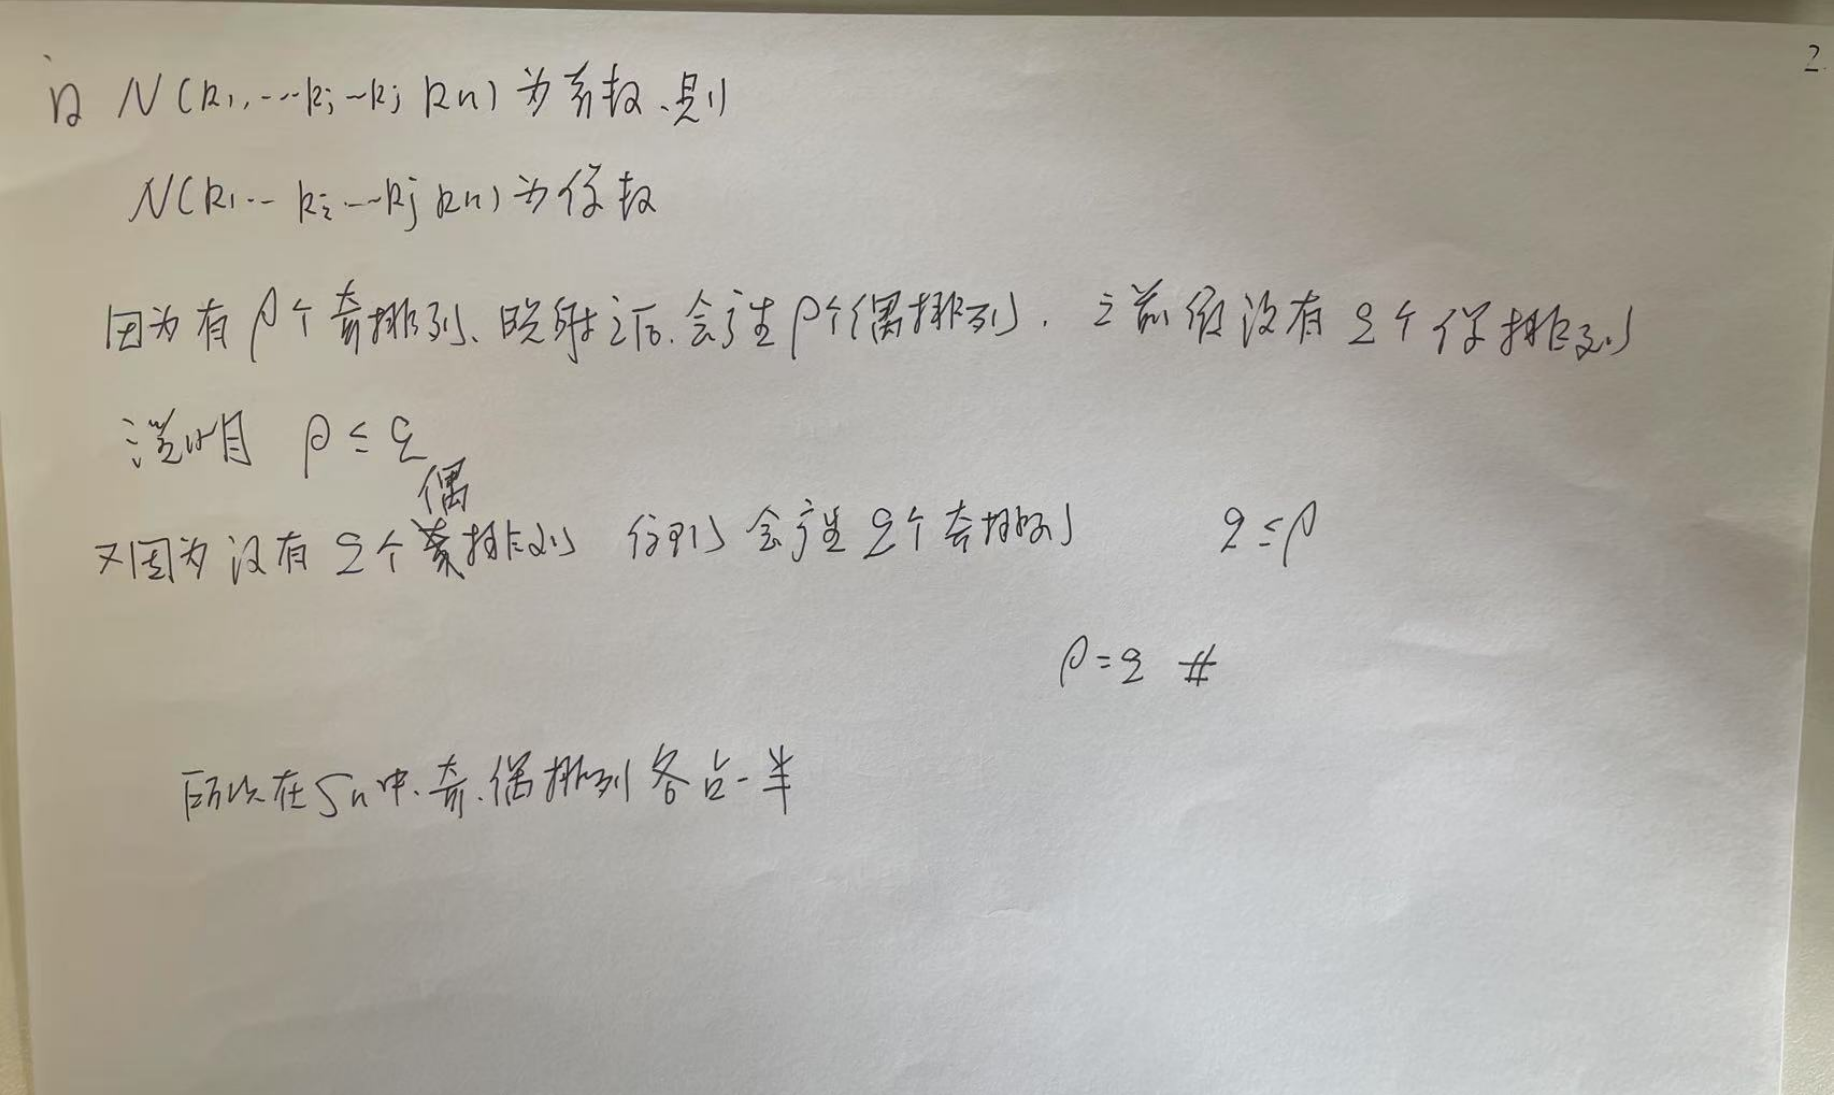 2.
设 N(k1,…ki…kj kn) 为奇数,则
N(k1… ki…kj kn) 为偶数
因为有 p个奇排列、映射之后.会产生p个偶排列. 之前假设有 q个偶排列
说明 p ≤ q
偶
又因为设有 q个排列 会产生q个奇排列 q≤p
p=q #
所以在Sn中.奇.偶排列各占一半